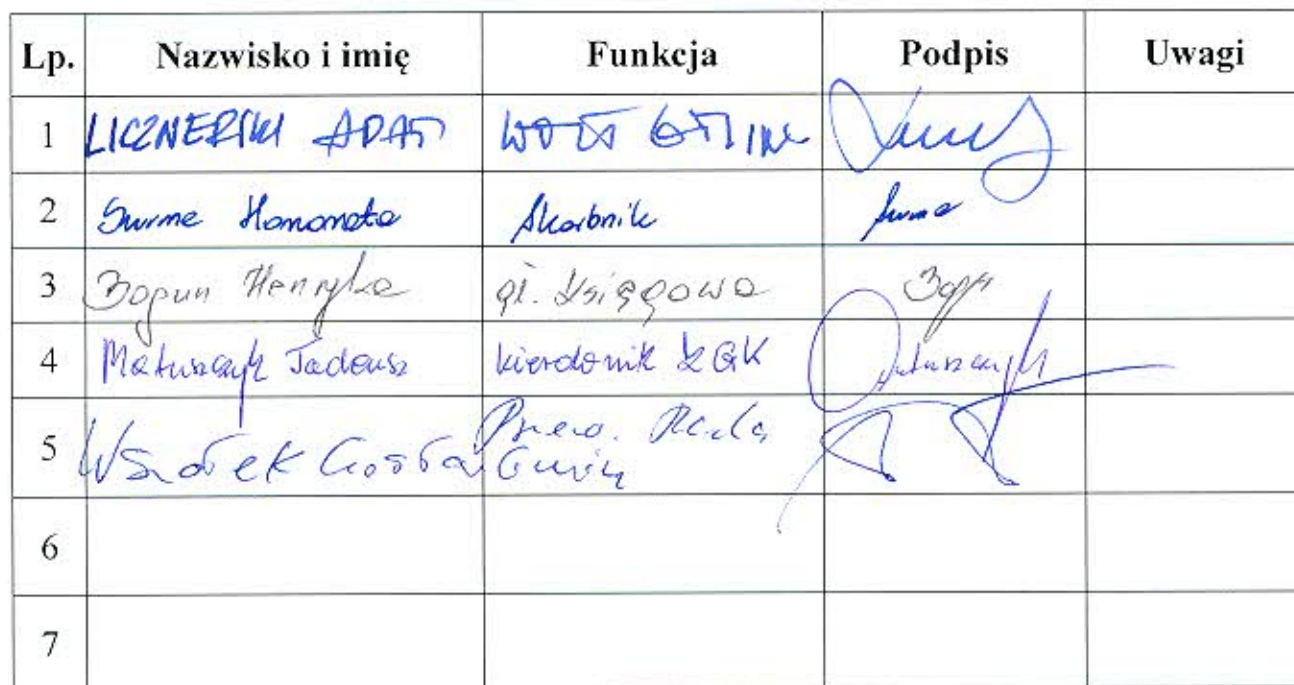 Lp. Nazwisko i imię Funkcja Podpis Uwagi
1 LICZNERSKI ADAM WÓJT GMINY
2 Surma Skarbnik Surma
3 Bogun Henryka gł. Księgowa
4 Matuszczyk Tadeusz kierownik ZGK Matuszczyk
5 Wszołek Przew. Rady
Gminy
6
7